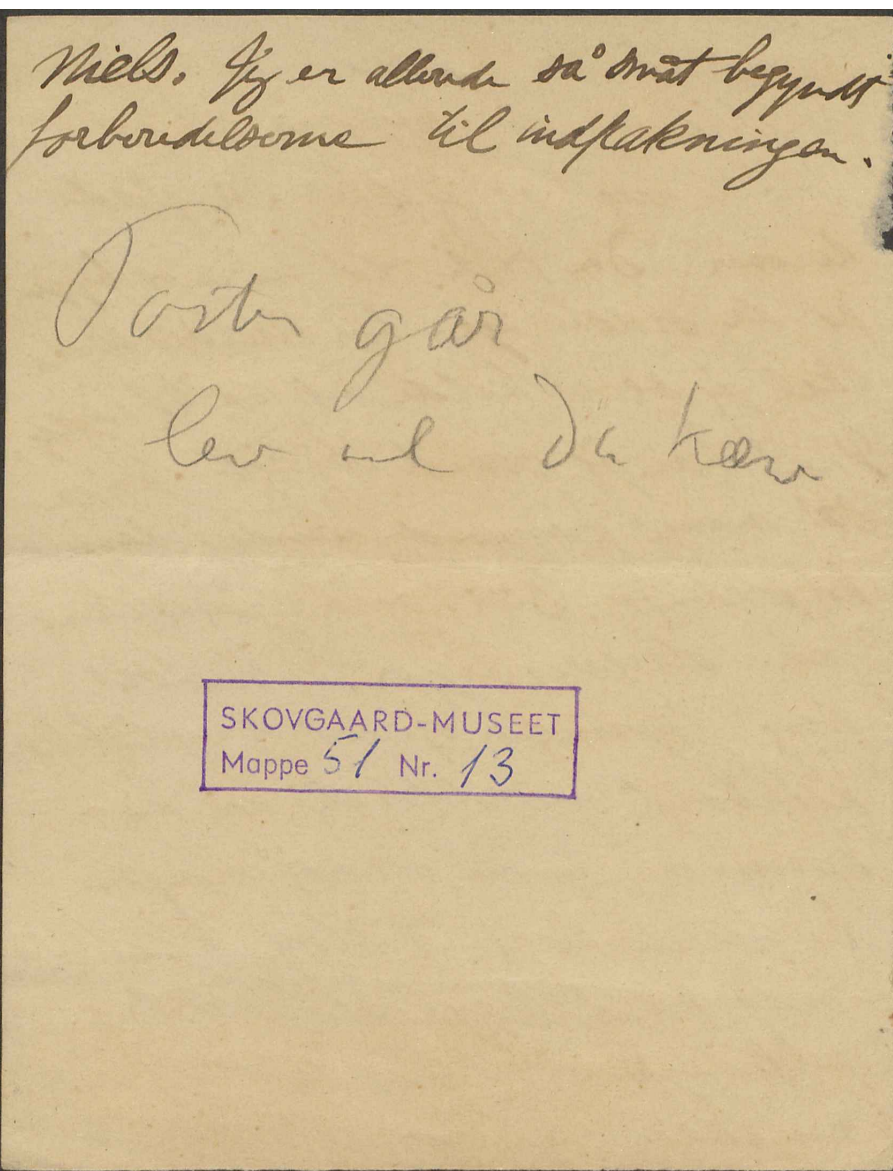 Niels. Jeg er allerede så småt begyndt
forberedelserne til indpakningen.
Posten går
lev vel Du kære
SKOVGAARD-MUSEET
Mappe 51 Nr. 13